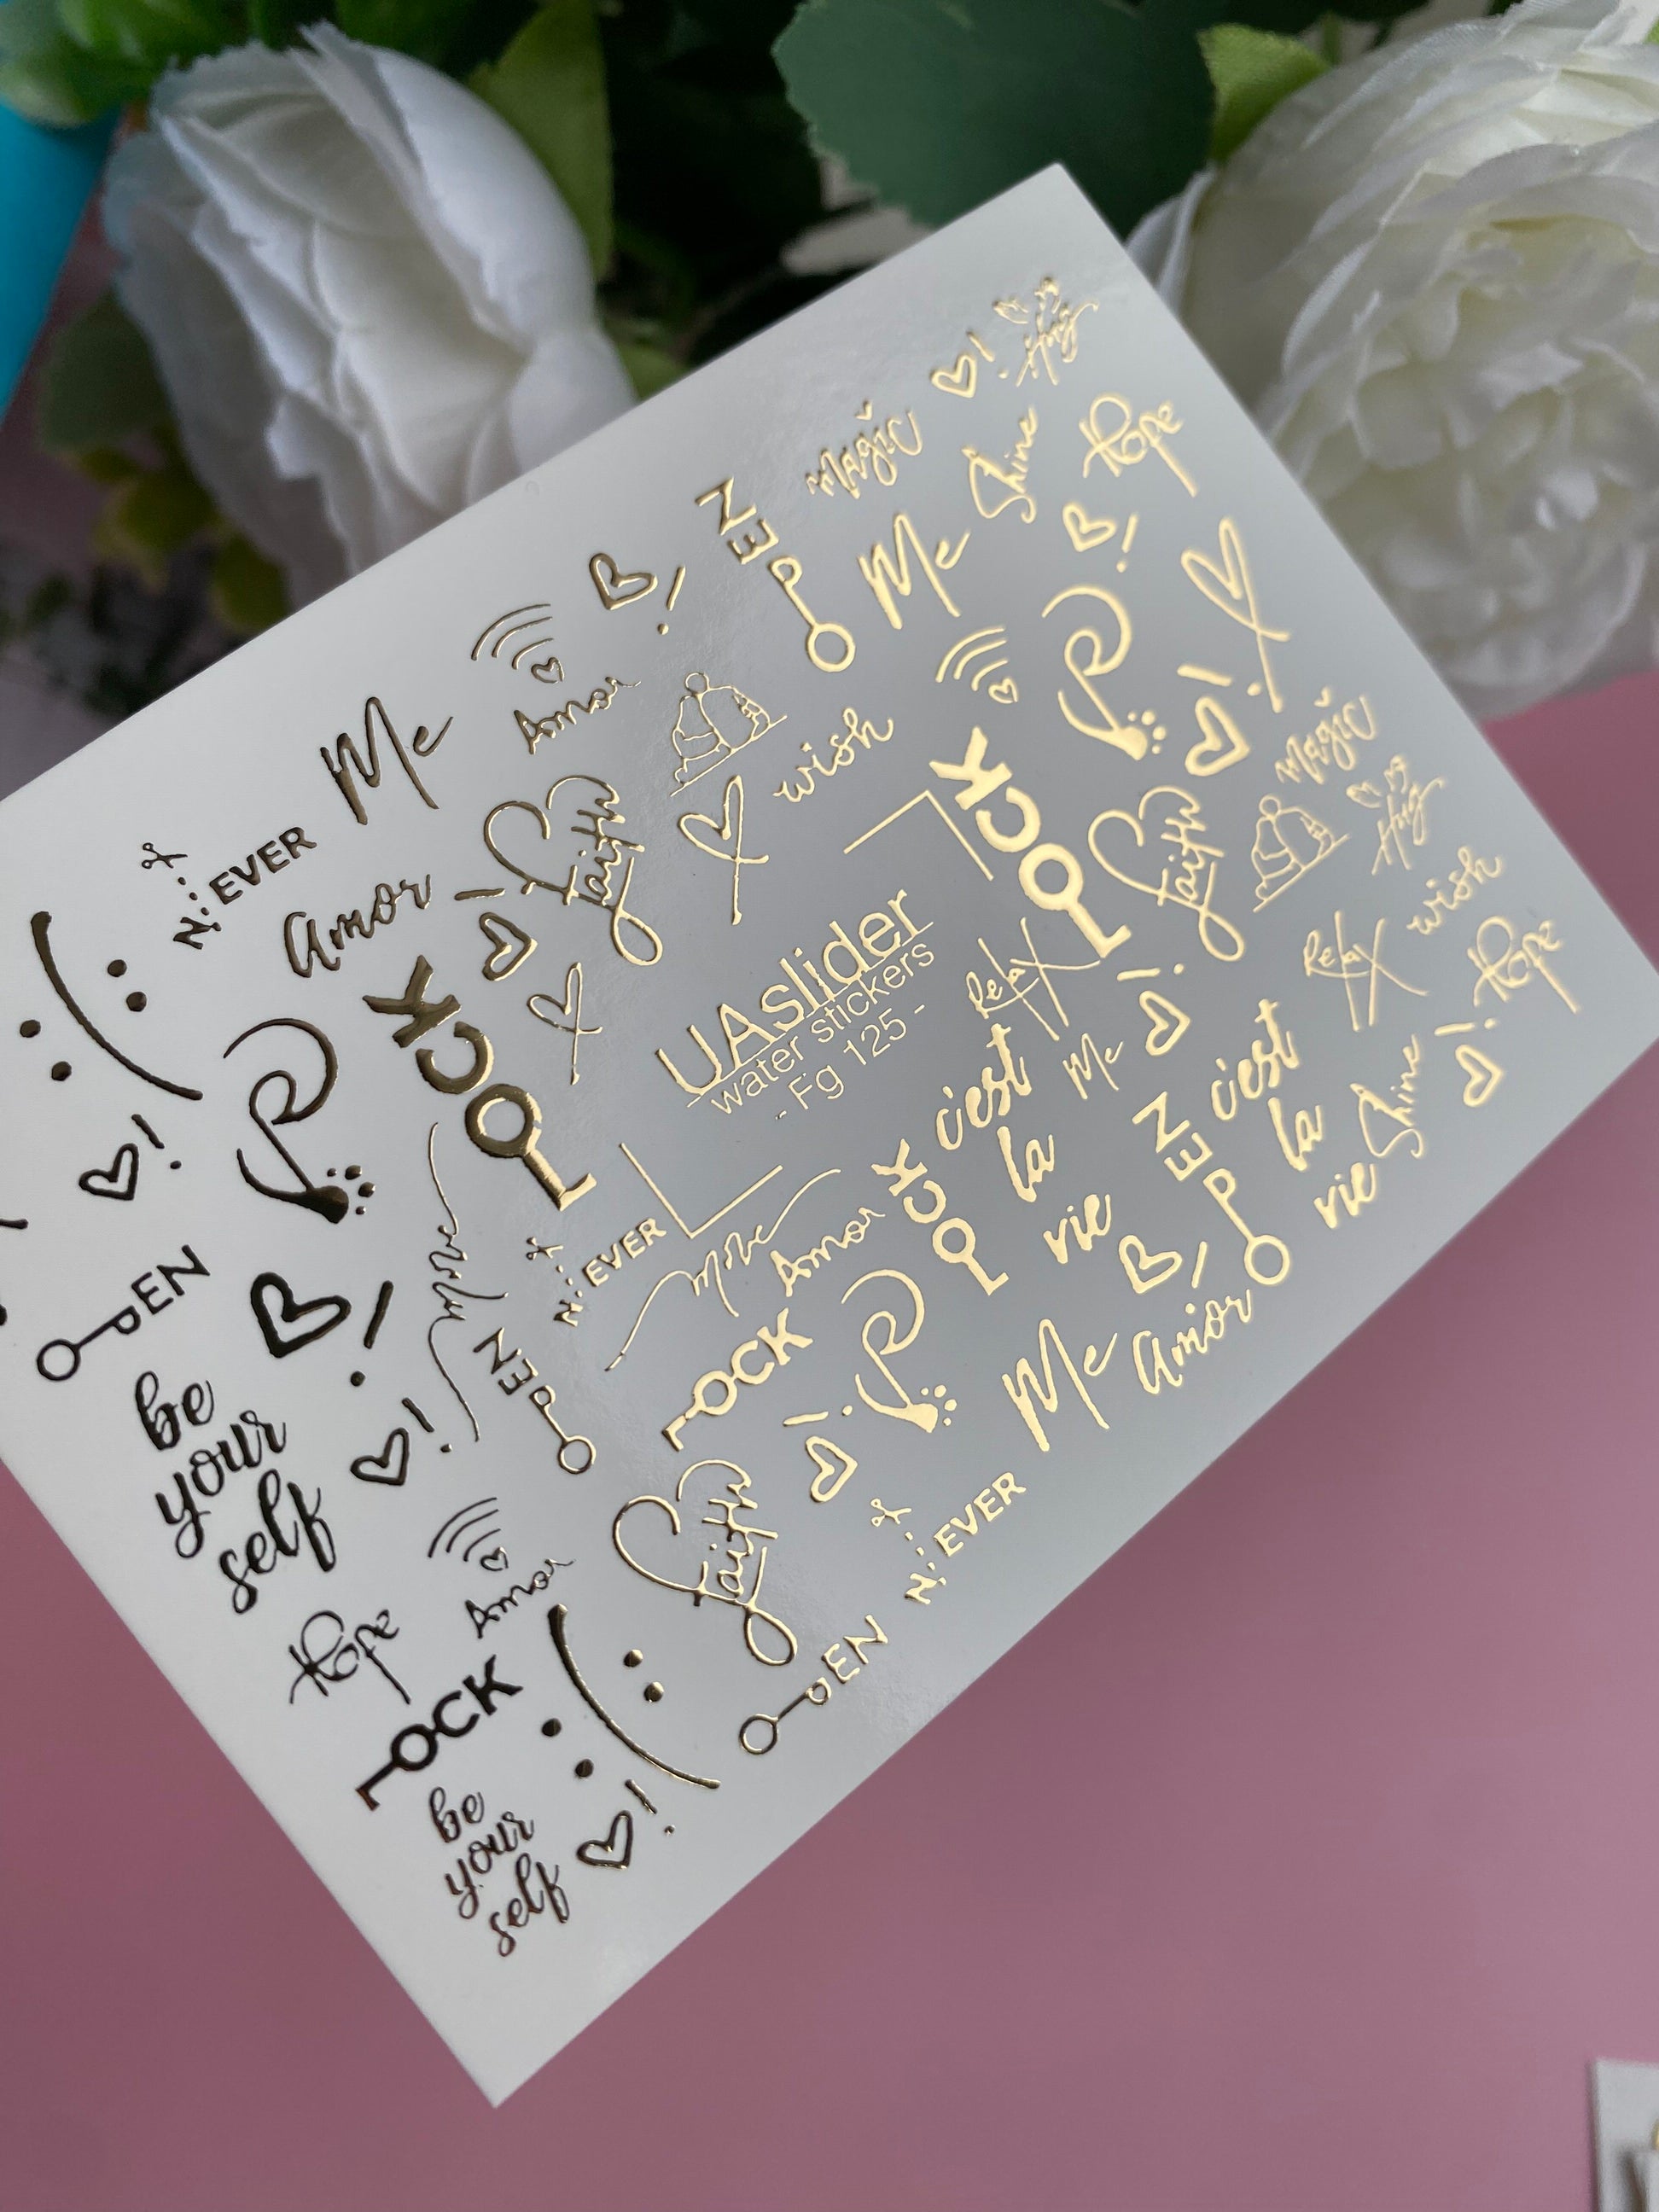 Hug
Magic
Shine
Hope
OPEN
Me
Amor
Me
wish
N:EVER
Amor
faith
LOCK
LOCK
Magic
Hug
faith
wish
Relax
Hope
UAslider
water stickers
- Fg 125 -
Relax
Me
c'est
la
vie
c'est
la
vie
Shine
OPEN
LOCK
Amor
N:EVER
OPEN
OPEN
LOCK
Me
Amor
be
your
self
faith
N:EVER
Amor
OPEN
Hope
LOCK
be
your
self